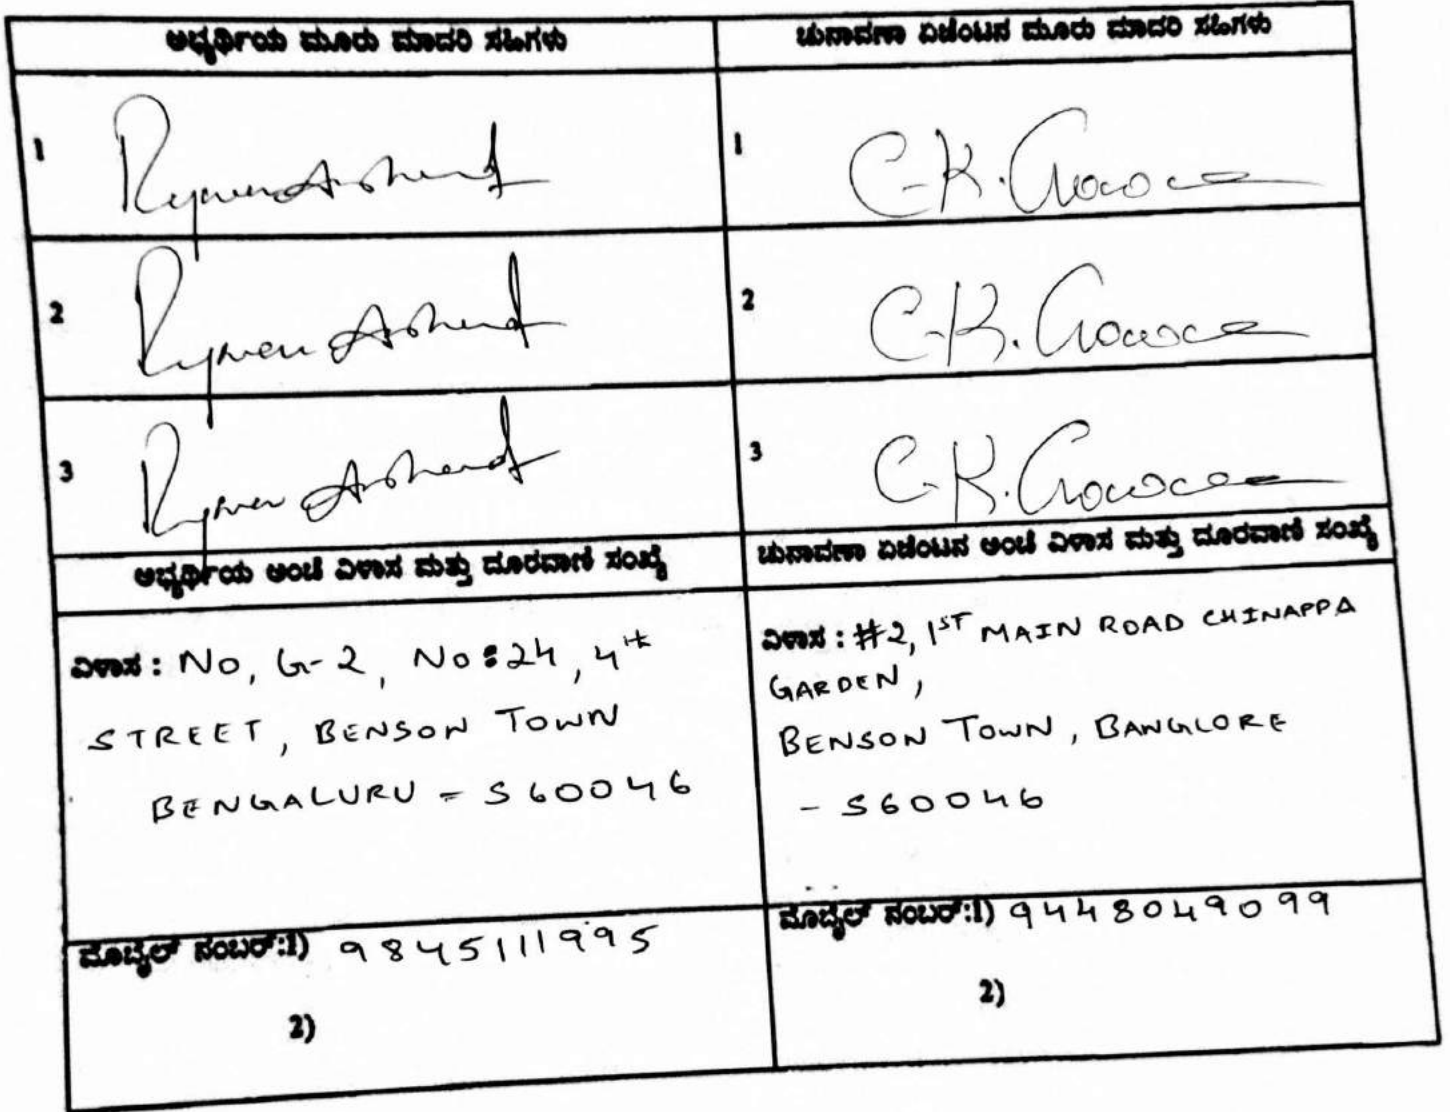 ಅಭ್ಯರ್ಥಿಯ ಮೂರು ಮಾದರಿ ಸಹಿಗಳು
ಚುನಾವಣಾ ಏಜೆಂಟನ ಮೂರು ಮಾದರಿ ಸಹಿಗಳು
1
1 C.K.
2
2 C.K.
3
3 C.K.
ಅಭ್ಯರ್ಥಿಯ ಅಂಚೆ ವಿಳಾಸ ಮತ್ತು ದೂರವಾಣಿ ಸಂಖ್ಯೆ
ಚುನಾವಣಾ ಏಜೆಂಟನ ಅಂಚೆ ವಿಳಾಸ ಮತ್ತು ದೂರವಾಣಿ ಸಂಖ್ಯೆ
ವಿಳಾಸ : NO, G-2, No:24, 4th
STREET, BENSON TOWN
BENGALURU - 560046
ವಿಳಾಸ : #2, 1ST MAIN ROAD CHINAPPA
GARDEN,
BENSON TOWN, BANGLORE
- 560046
ಮೊಬೈಲ್ ನಂಬರ್:1) 9845111995
2)
ಮೊಬೈಲ್ ನಂಬರ್:1) 9448049099
2)